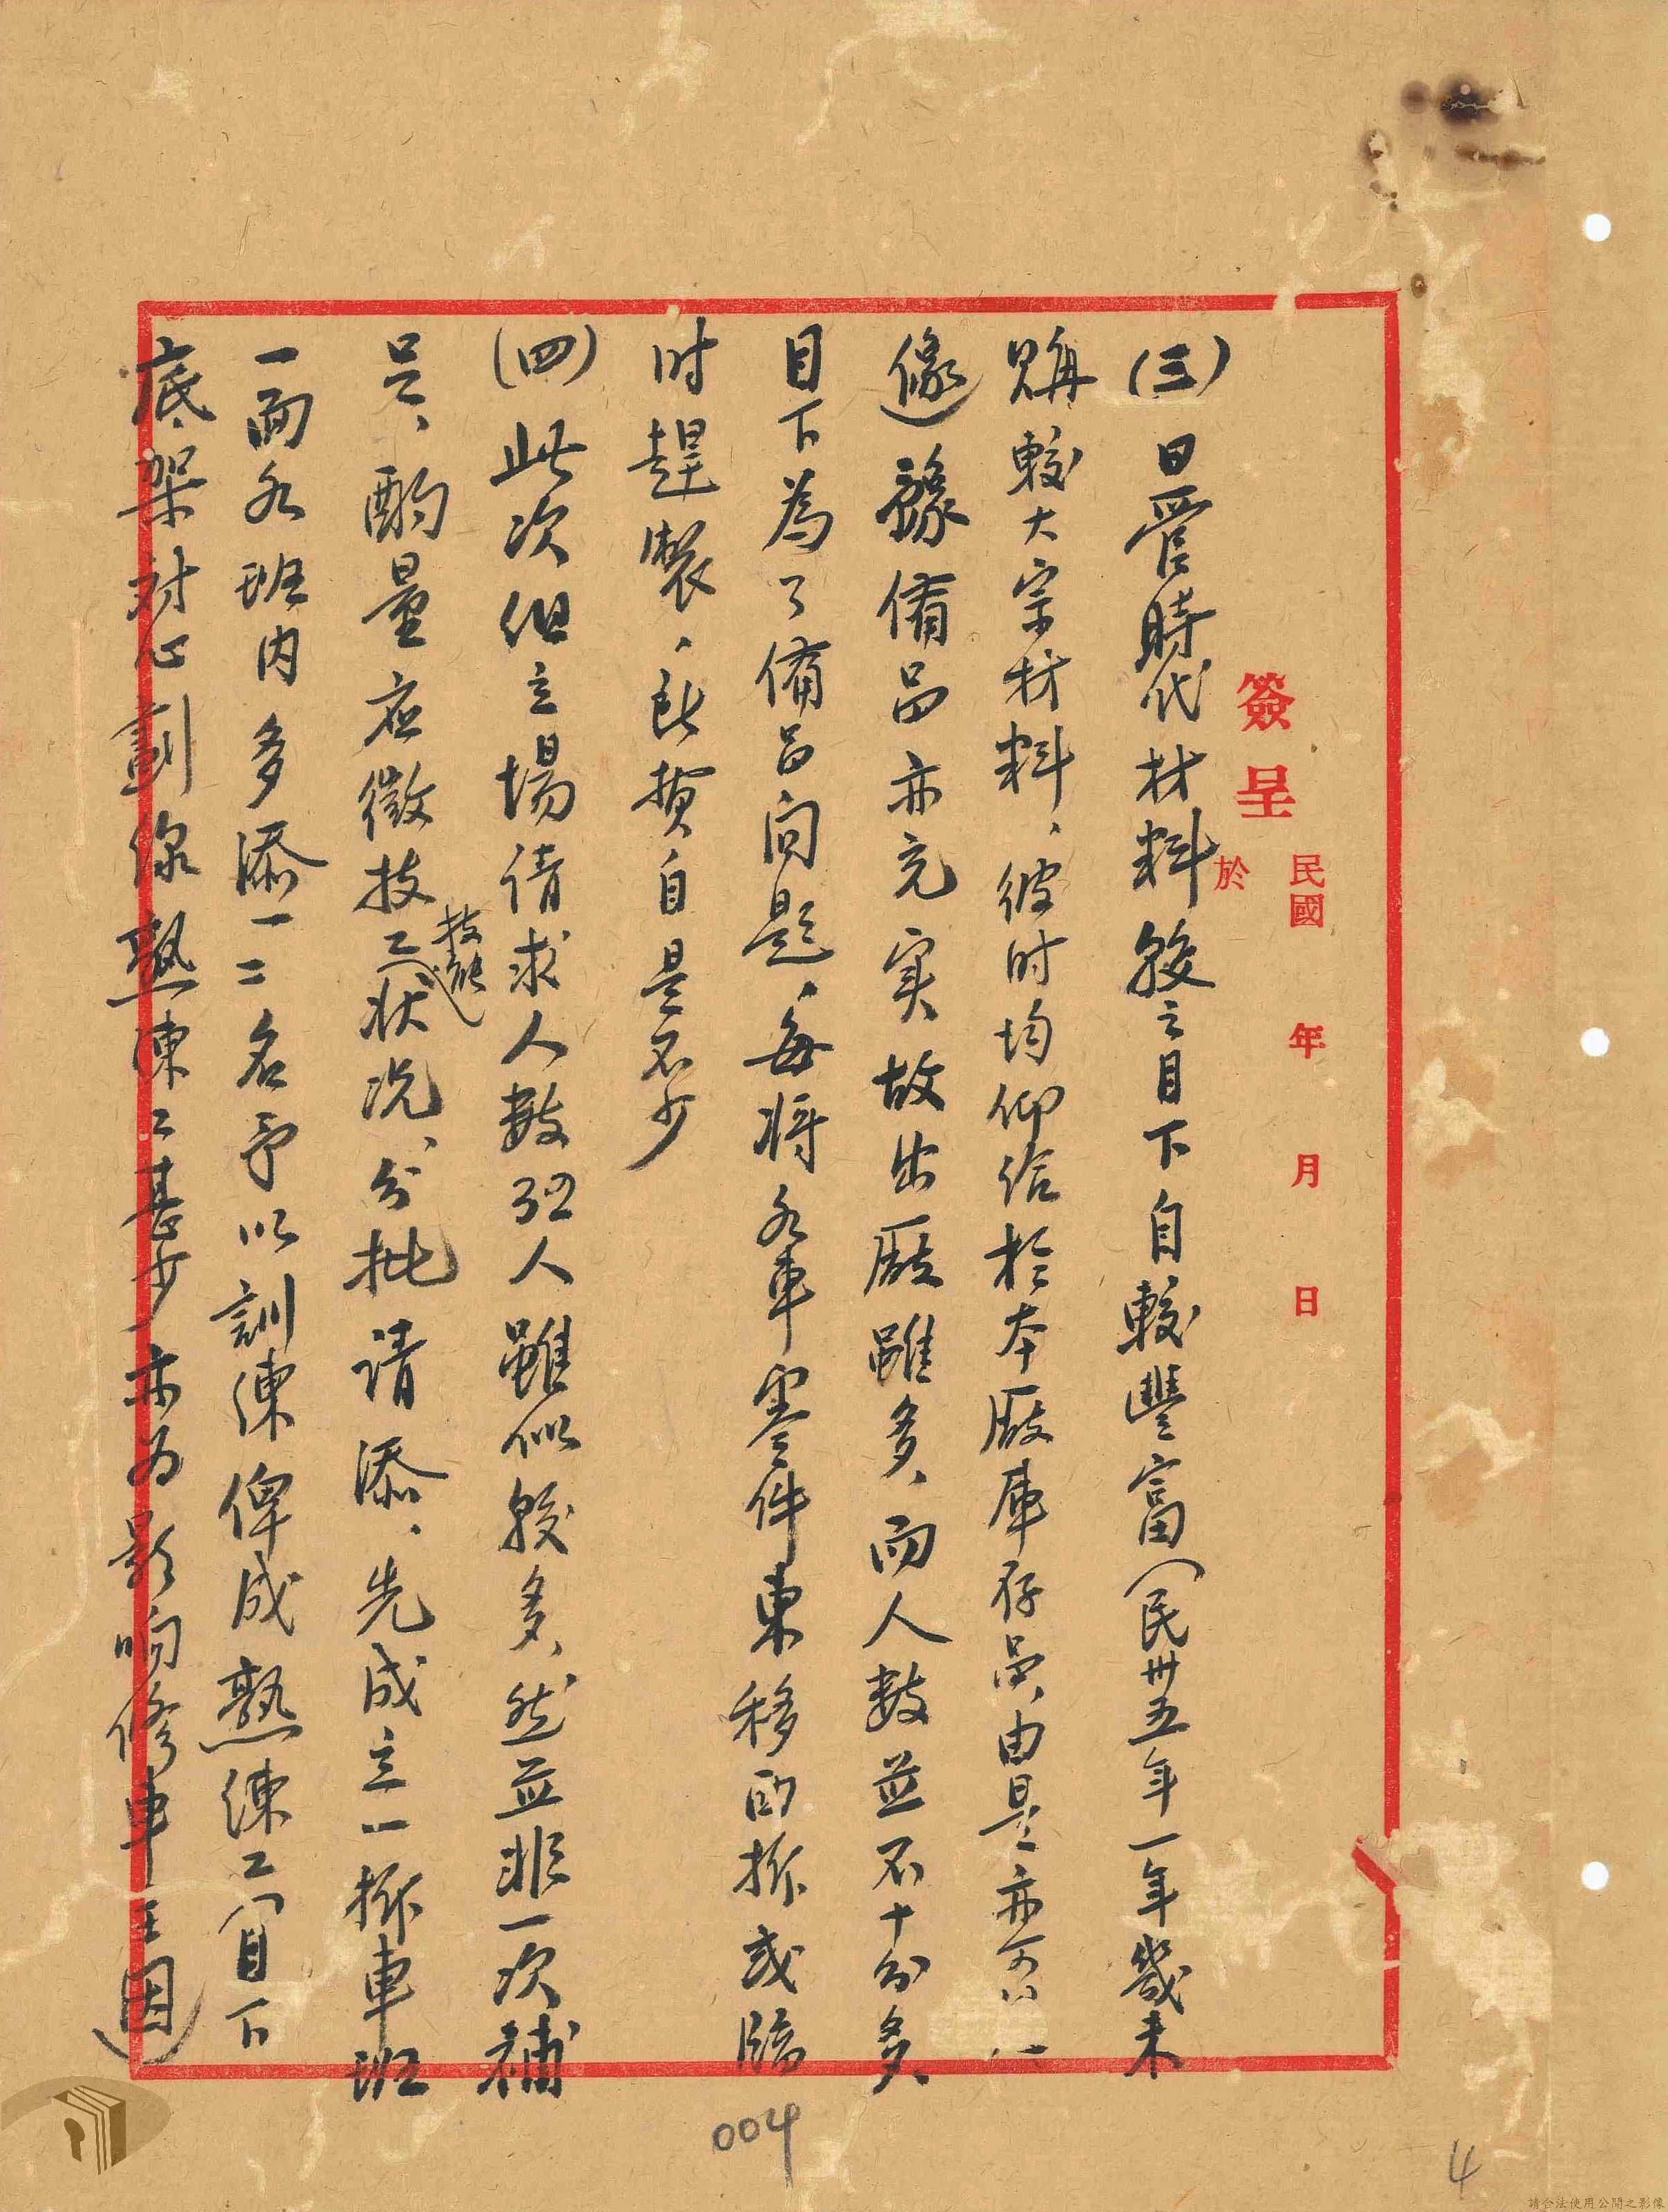 簽呈
於
民國 年 月 日
(三)日管時代材料較之目下自較豐富(民卅五年一年幾未
購較大宗材料、彼时均仰给於本廠庫存品、由是亦可以
)豫備品亦充实故出廠雖多、而人數並不十分多、
目下為了備品问題、每將各車零件東移西拆或臨
时趕製、耗費自是不少
(四)此次但立場请求人數 人雖似較多、然並非一次補
足、酌量应徵技工技能状况、分批请添、先成立一拆車班
一面各班内多添一二名予以訓練俾成熟練工(目下
底架对心劃線熟練工甚少亦为影响修車主因)
004
4
請合法使用公開之影像